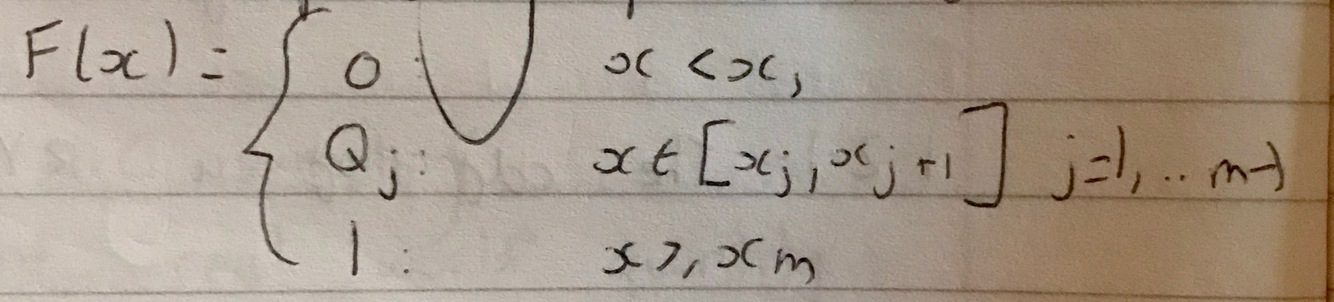 F(x) = { 0 : x < x₁
Qj : x ∈ [xj, xj+1] j=1, .. m-1
1 : x ≥ xm